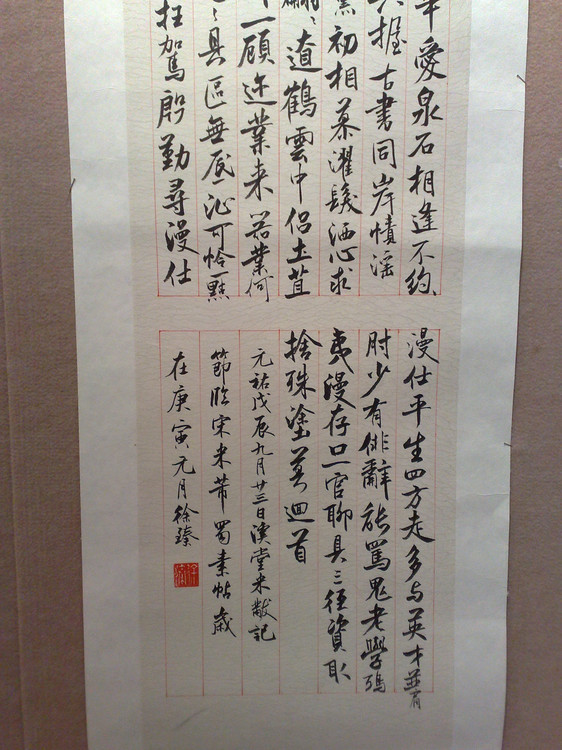 愛泉石相逢不約
握古書同岸幘淫
初相慕濯髮洒心求
遼鶴雲中侶土苴
一顧迩業来器業何
具區無底沚可怜一點
枉駕殷勤尋漫仕
漫仕平生四方走多与英才並肩
肘少有俳辭能罵鬼老學鴟
夷漫存口一官聊具三徑資取
捨殊塗莫迴首
元祐戊辰九月廿三日溪堂米黻記
節臨宋米芾蜀素帖歲
在庚寅元月徐臻